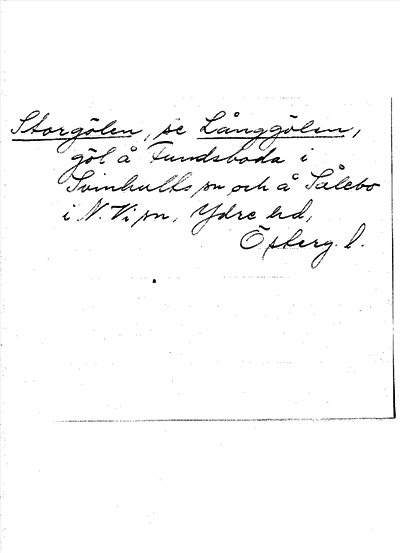 Storgölen, se Långgölen,
göl å Fundsboda i
Svinhults sn och å Sålebo
i N. Vi sn, Ydre hd,
Östberg. l.